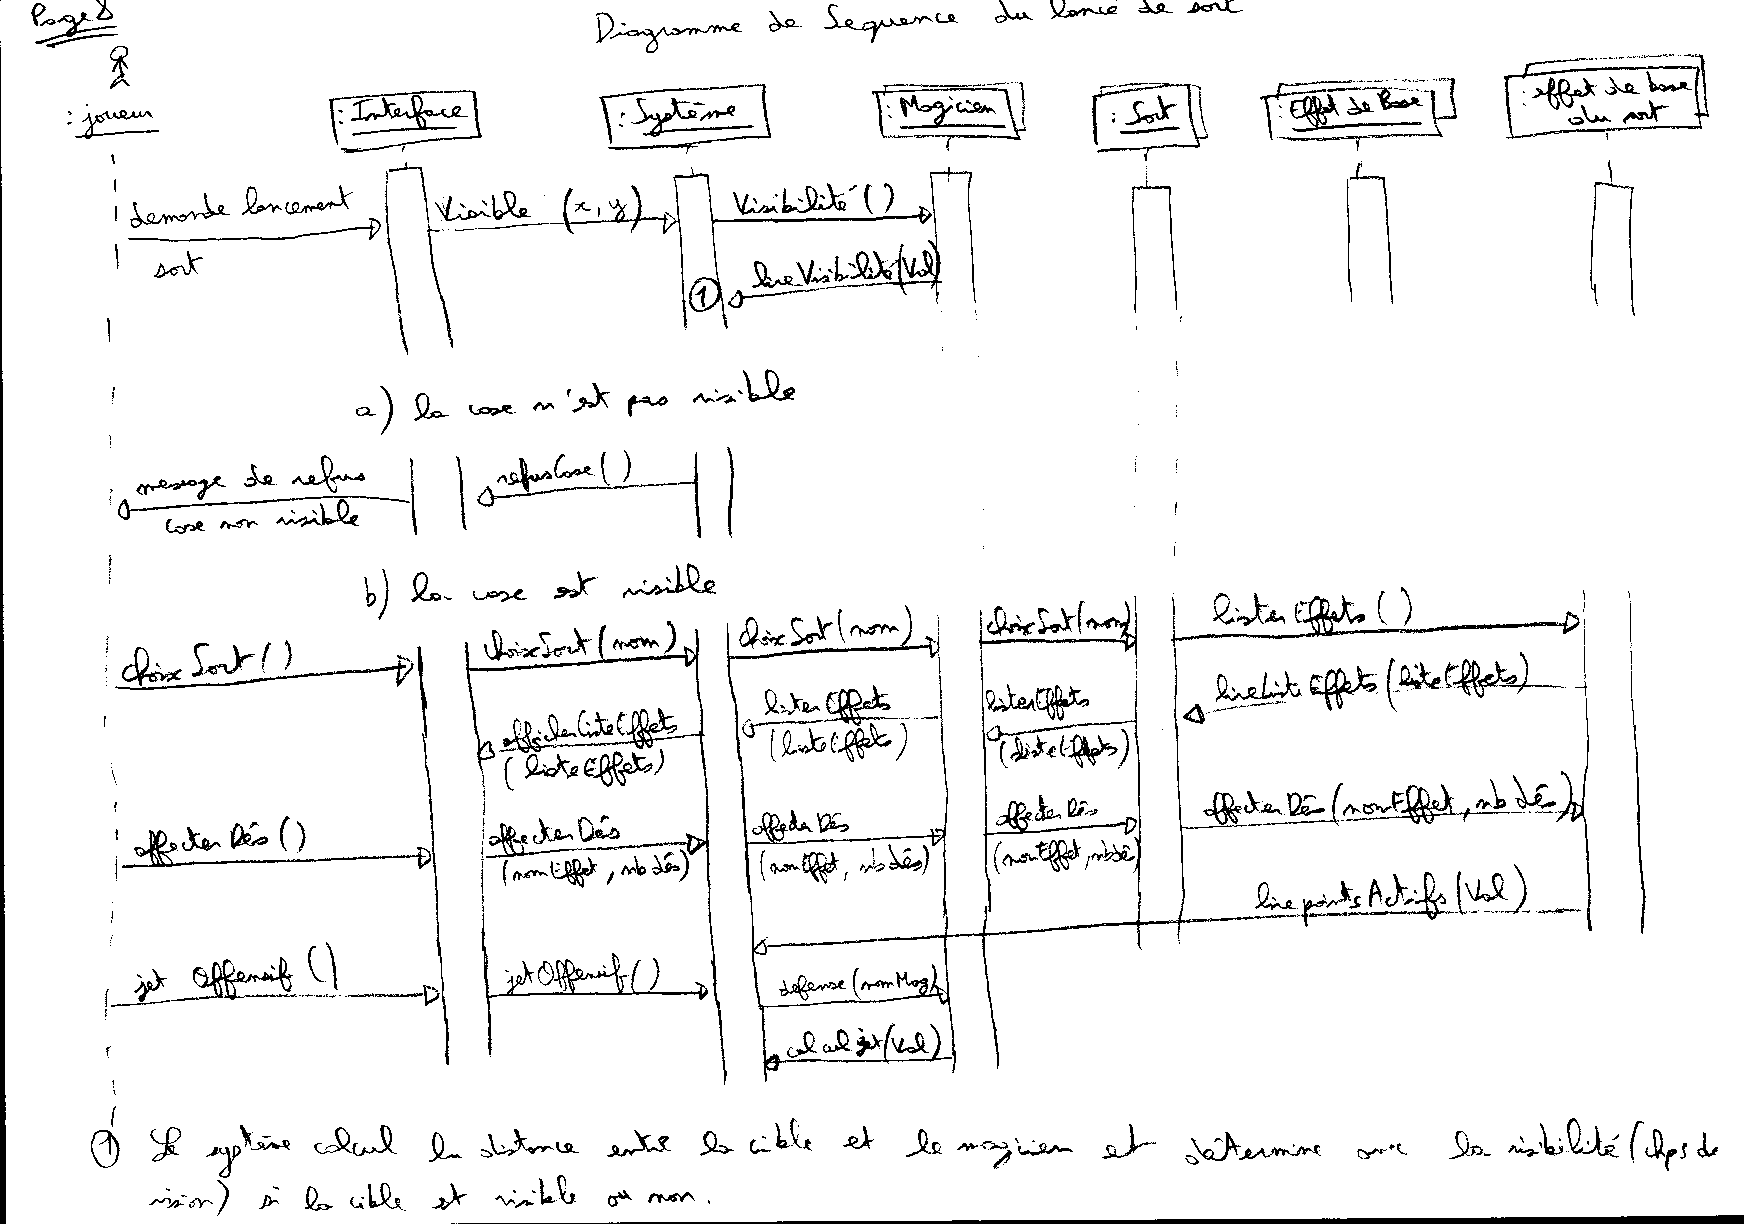 Page 8
Diagramme de Sequence du lancé de sort
: joueur
: Interface
: Système
: Magicien
: Sort
: Effet de Base
: effet de base
du sort
demande lancement
sort
Visible (x, y)
Visibilité ()
lire Visibilité (Val)
1
a) la case n'est pas visible
message de refus
case non visible
refusCase ()
b) la case est visible
choix Sort ()
choixSort (nom)
choix Sort (nom)
choixSort (nom)
lister Effets ()
afficherListeEffets
(listeEffets)
lister Effets
(listeEffets)
listerEffets
(listeEffets)
lireListeEffets (listeEffets)
affecter Dés ()
affecter Dés
(nomEffet, nb dés)
affecter Dés
(nomEffet, nb dés)
affecter Dés
(nomEffet, nb dés)
affecter Dés (nomEffet, nb dés)
lire pointsActifs (Val)
jet Offensif ()
jetOffensif ()
defense (nomMag)
calcul jet (Val)
1 Le système calcul la distance entre la cible et le magicien et détermine avec la visibilité (chps de
vision) si la cible et visible ou non.